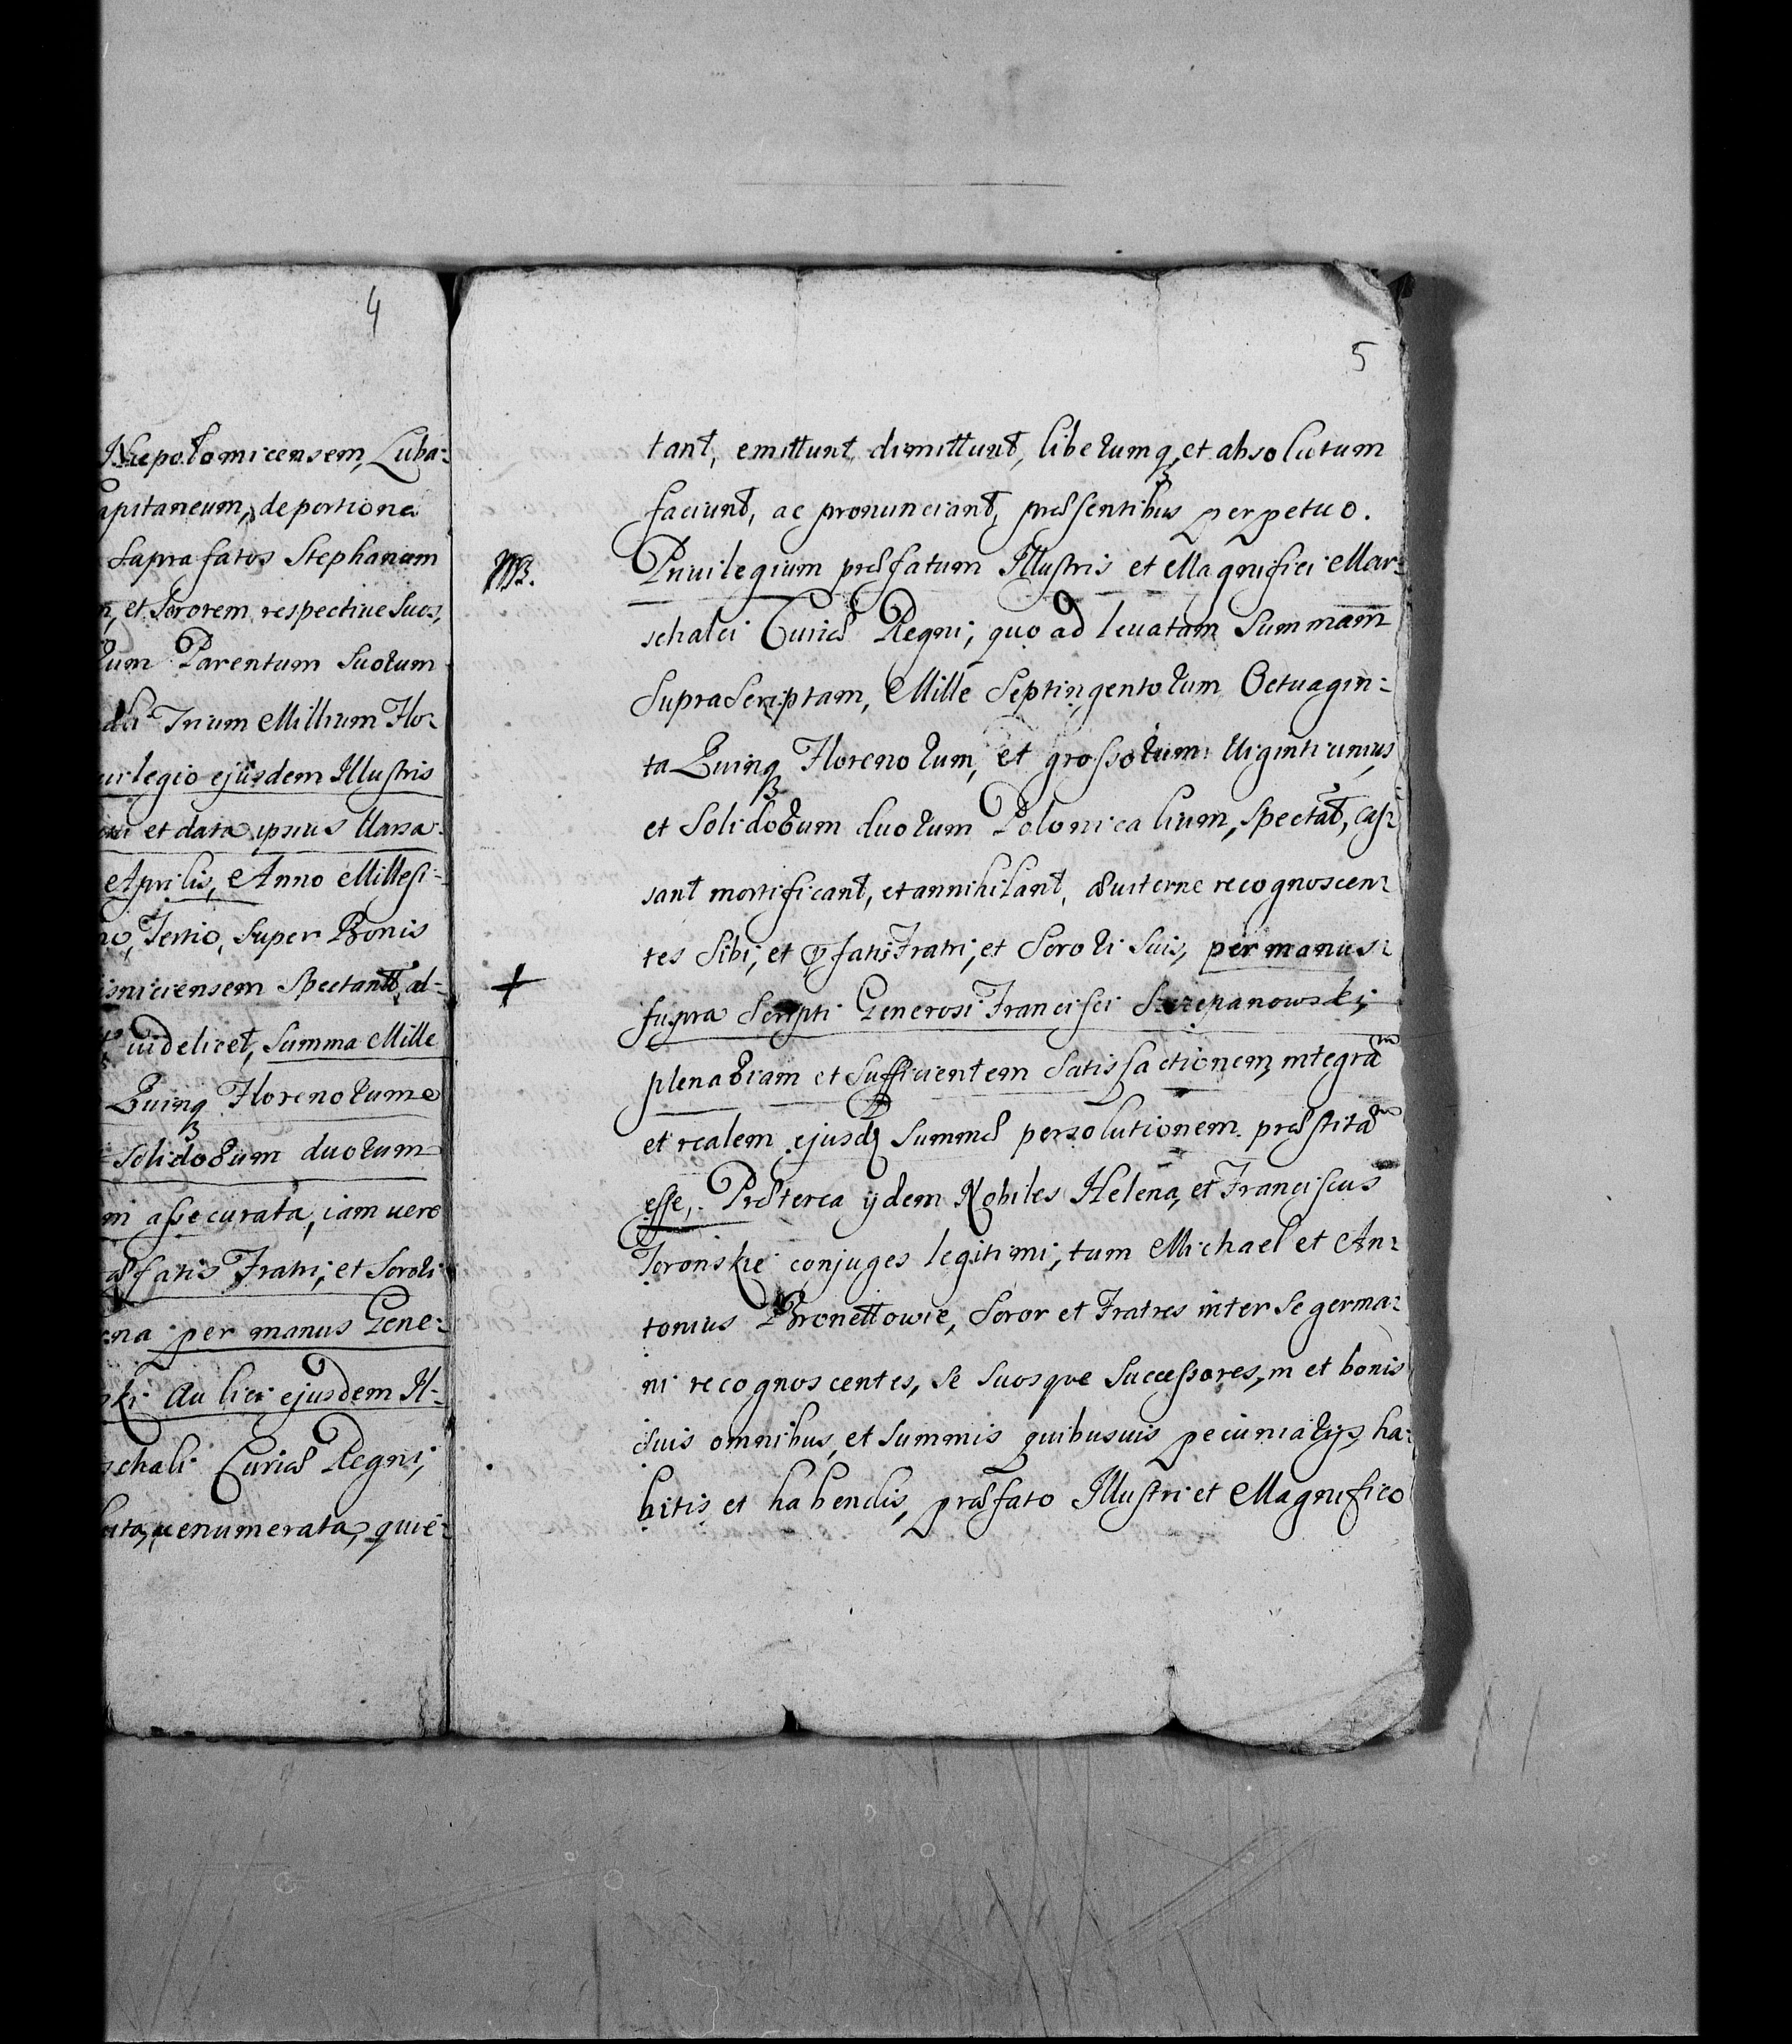 4
Niepołomicensem, Luba-
apitaneum, de portione
suprafatos Stephanum
et Sororem respectiue Suos,
Parentum Suorum
Trium Millium Flo-
uilegio ejusdem Illustris
et data ipsius Varsa-
Aprilis, Anno Millesi-
Tertio, Super Bonis
isniciensem Spectant, al-
uidelicet, Summa Mille
Quinq Florenorum e
Solidorum duorum
assecurata, iam uero
fatis Fratri, et Sorori
per manus Gene-
ski Aulici ejusdem Il-
schali Curiæ Regni,
enumerata, quie-
5
tant, emittunt dimittunt, liberumq, et absolutum
faciunt, ac pronunciant, præsentibus perpetuo.
NB. Priuilegium præfatum Illustris et Magnifici Mar-
schalci Curiæ Regni, quo ad leuatam Summam
SupraScriptam, Mille Septingentorum Octuagin-
ta Quinq Florenorum, et grossorum Viginti unius
et Solidorum duorum Polonicalium, spectat, cas-
sant mortificant, et annihilant, recognoscen-
tes Sibi, et pfatis Fratri, et Sorori Suis, per manus
+ supra Scripti Generosi Francisci Szczepanowski,
plenariam et Sufficientem Satisfactionem, integram
et realem ejusdq Summæ persolutionem præstitam
esse, Præterea ijdem Nobiles Helena, et Franciscus
Toronskie conjuges legitimi, tum Michael et An-
tonius Bronettowie, Soror et Fratres inter Se germa-
ni recognoscentes, Se Suosque Successores, in et bonis
Suis omnibus, et Summis quibusuis pecuniarijs, ha-
bitis et habendis, præfato Illustri et Magnifico